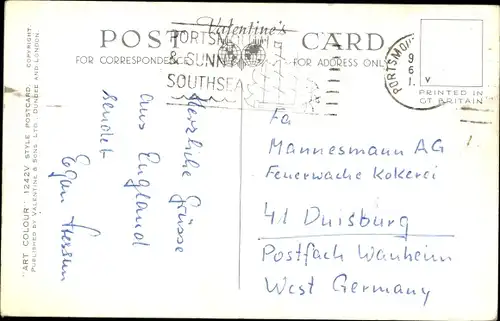 POST CARD
Valentine's
FOR CORRESPONDENCE
FOR ADDRESS ONLY
PORTSM
& SUNNY
SOUTHSEA
PORTSMOU
9
6
1
V
PRINTED IN
GT BRITAIN
"ART COLOUR" 1242V STYLE POSTCARD. COPYRIGHT.
PUBLISHED BY VALENTINE & SONS LTD., DUNDEE AND LONDON.
Herzliche Grüsse
aus England
sendet
Egon
Fa
Mannesmann AG
Feuerwache Kokerei
41 Duisburg
Postfach Wanheim
West Germany